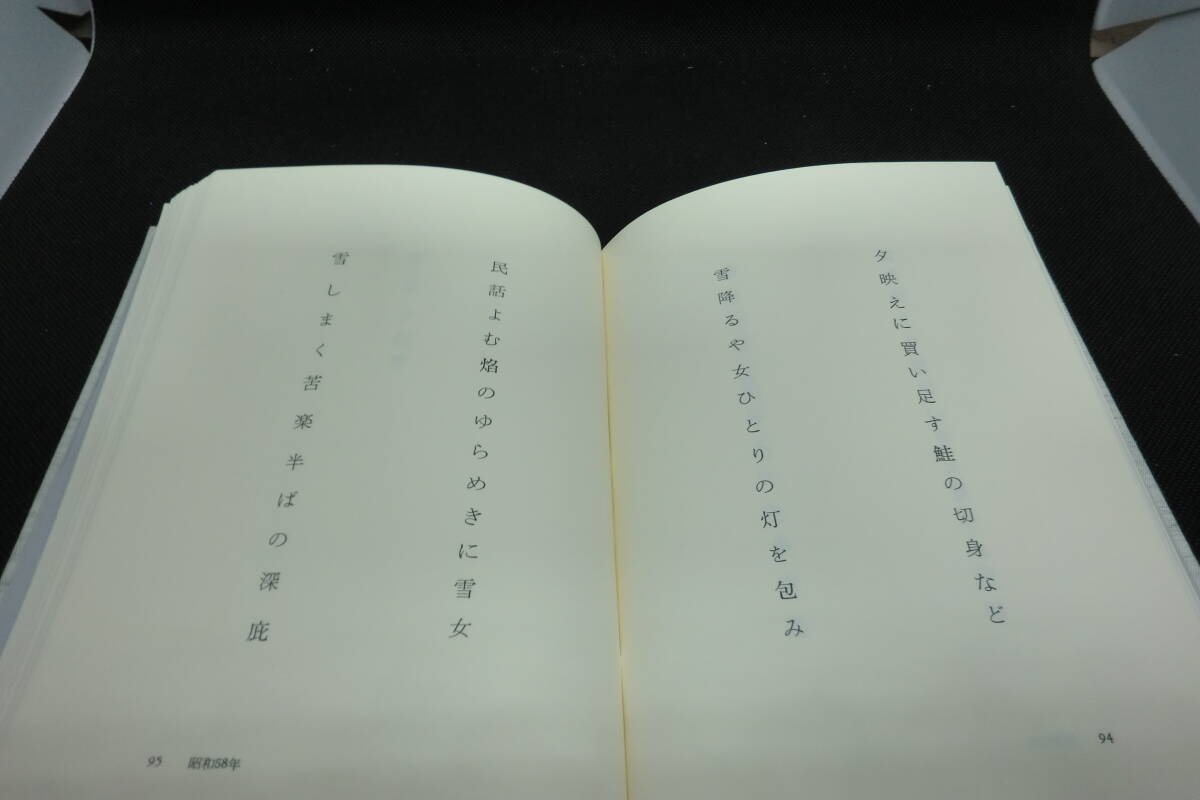 夕映えに買い足す鮭の切身など
雪降るや女ひとりの灯を包み
94
民話よむ焰のゆらめきに雪女
雪しまく苦楽半ばの深庇
95 昭和58年